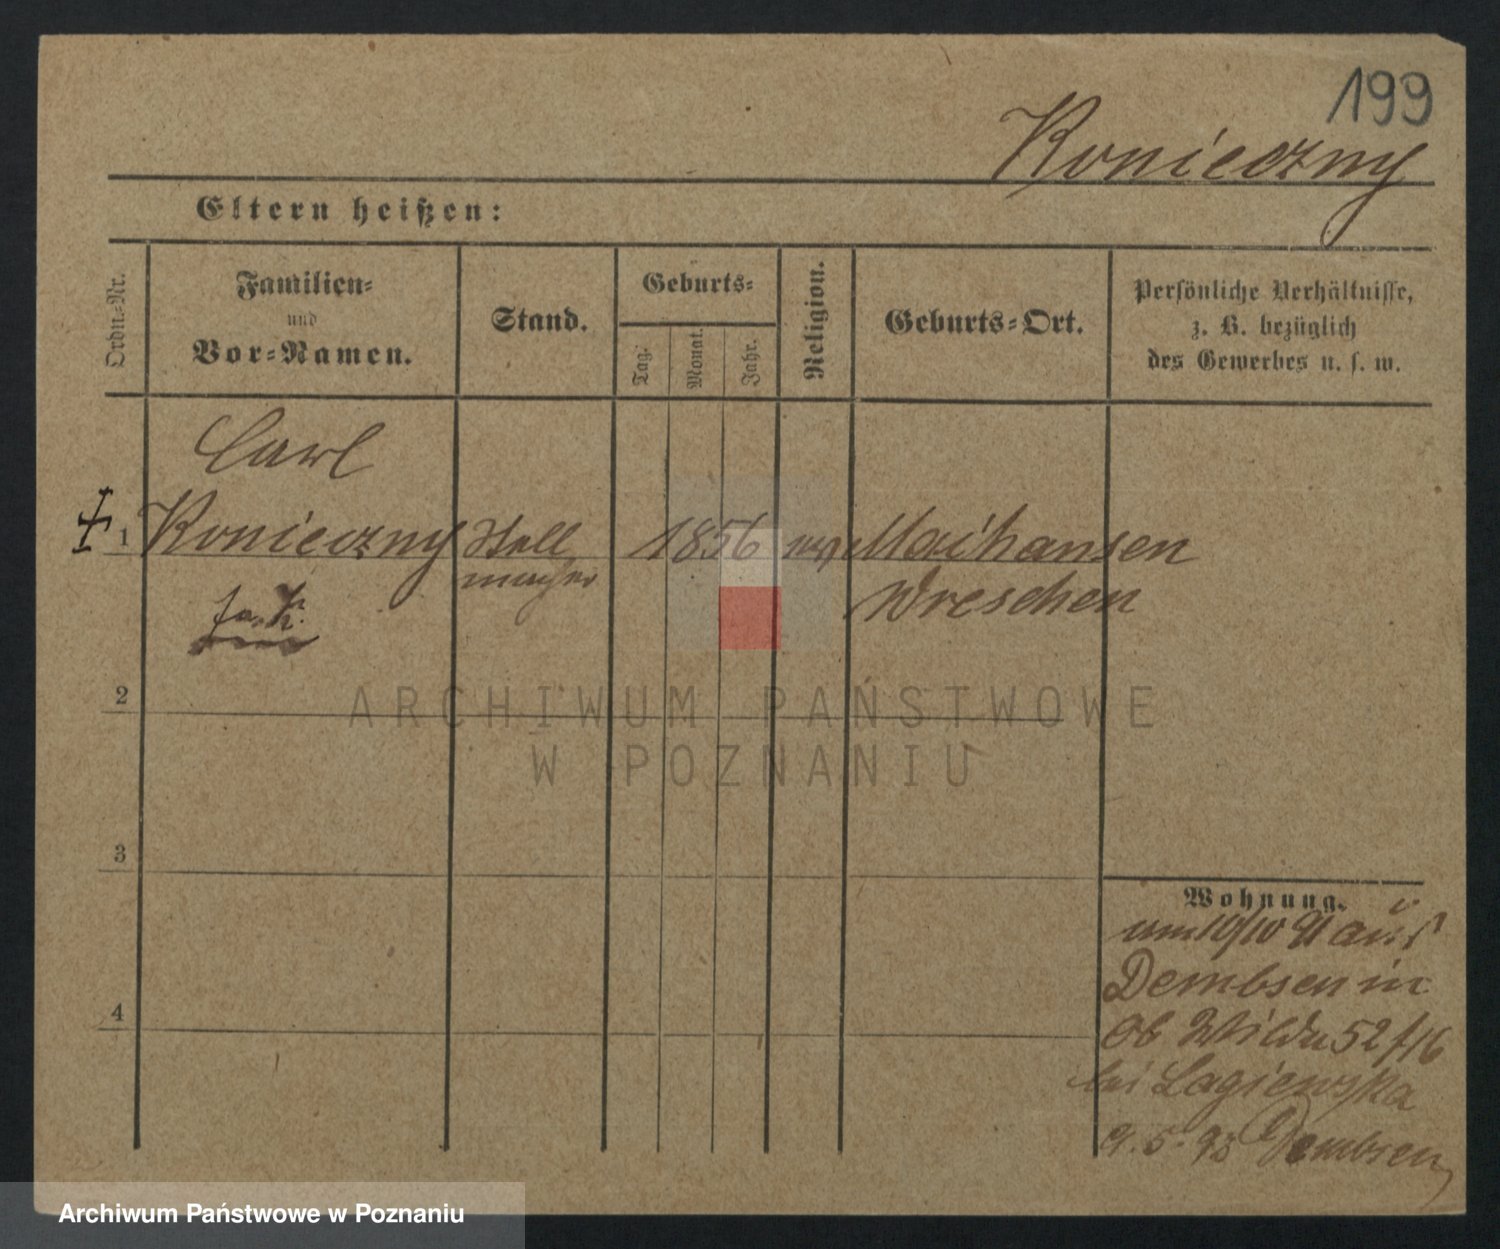 199
Konieczny
Eltern heißen:
Ordn.-Nr.
Familien-
und
Vor-Namen.
Stand.
Geburts-
Tag.
Monat.
Jahr.
Religion.
Geburts-Ort.
Persönliche Verhältnisse,
z. B. bezüglich
des Gewerbes u. s. w.
Carl
1 Konieczny Stell 1856 Maihausen
macher Wreschen
2
ARCHIWUM PAŃSTWOWE
W POZNANIU
3
Wohnung.
am 10/10 91 aus
Dembsen in
Ob Wilda 52/16
bei Lagiewska
4
9.5.93 Dembsen
Archiwum Państwowe w Poznaniu